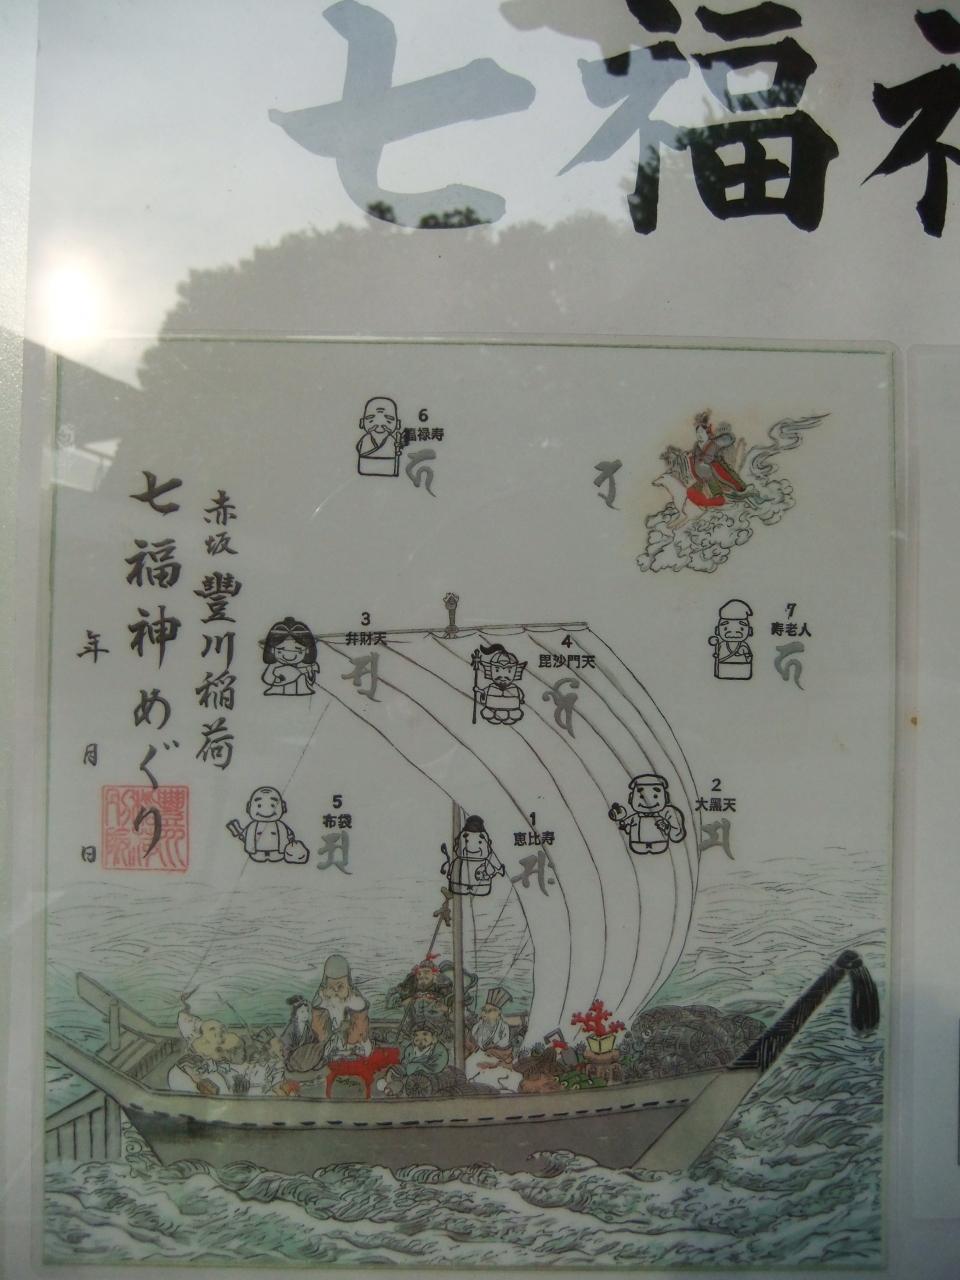 七福神
6
福禄寿
赤坂 豐川稲荷
七福神めぐり
年 月 日
3
弁財天
4
毘沙門天
7
寿老人
5
布袋
1
恵比寿
2
大黒天